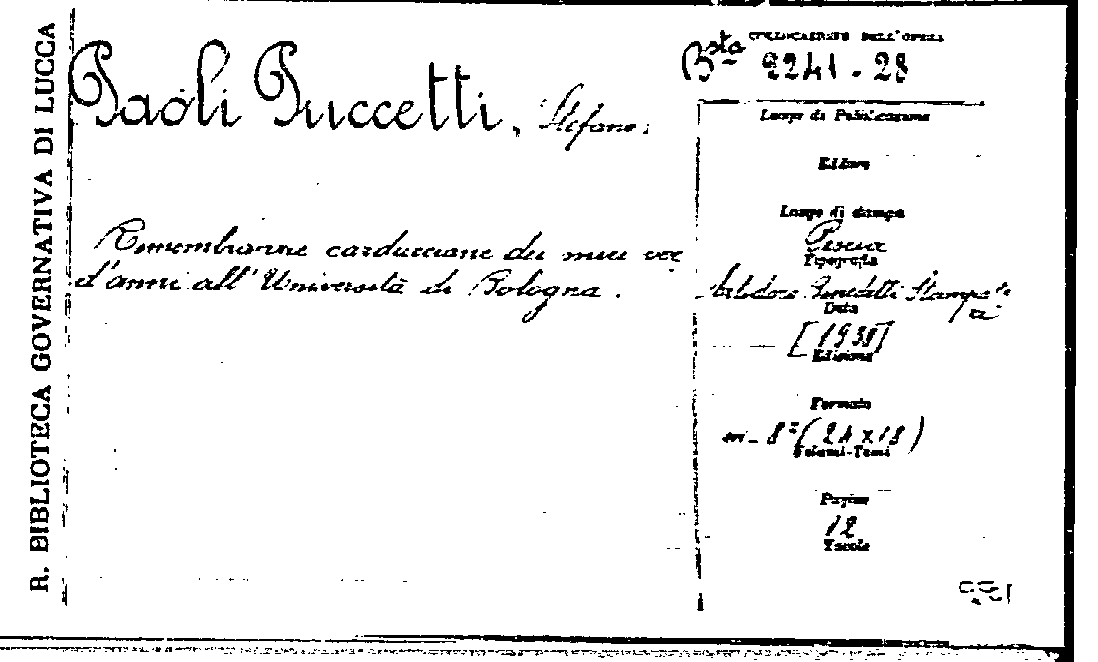 R. BIBLIOTECA GOVERNATIVA DI LUCCA
Paoli Puccetti, Stefano.
Rimembranze carducciane dei miei
d'anni all'Università di Bologna.
COLLOCAZIONE DELL'OPERA
Bsta 2241.28
Luogo di Pubblicazione
Editore
Luogo di stampa
Pescia
Tipografia
Benedetti Stampat
Data
[1938]
Edizione
Formato
in-8º (24x18)
Volumi-Tomi
Pagine
12
Tavole